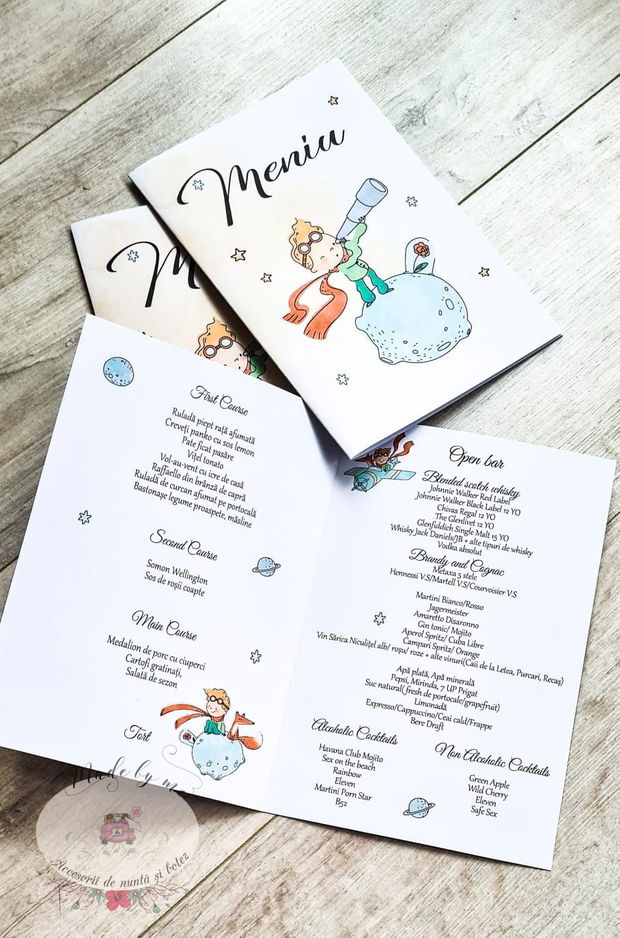 Meniu
M
First Course
Ruladă piept rață afumată
Creveți panko cu sos lemon
Pate ficat pasăre
Vițel tonato
Vol-au-vent cu icre de casă
Raffaello din brânză de capră
Ruladă de curcan afumat pe portocală
Bastonașe legume proaspete, măsline
Second Course
Somon Wellington
Sos de roșii coapte
Main Course
Medalion de porc cu ciuperci
Cartofi gratinați,
Salată de sezon
Tort
Open bar
Blended scotch whisky
Johnnie Walker Red Label
Johnnie Walker Black Label 12 YO
Chivas Regal 12 YO
The Glenlivet 12 YO
Glenfiddich Single Malt 15 YO
Whisky Jack Daniels/JB + alte tipuri de whisky
Vodka absolut
Brandy and Cognac
Metaxa 5 stele
Hennessi V.S/Martell V.S/Courvoisier V.S
Martini Bianco/Rosso
Jagermeister
Amaretto Disaronno
Gin tonic/ Mojito
Aperol Spritz/ Cuba Libre
Campari Spritz/ Orange
Vin Sârica Niculițel alb/ roșu/ roze + alte vinuri(Caii de la Letea, Purcari, Recaș)
Apă plată, Apă minerală
Pepsi, Mirinda, 7 UP Prigat
Suc natural( fresh de portocale/grapefruit)
Limonadă
Expresso/Cappuccino/Ceai cald/Frappe
Bere Draft
Alcoholic Cocktails
Havana Club Mojito
Sex on the beach
Rainbow
Eleven
Martini Porn Star
B52
Non Alcoholic Cocktails
Green Apple
Wild Cherry
Eleven
Safe Sex
Made by
Accesorii de nuntă și botez